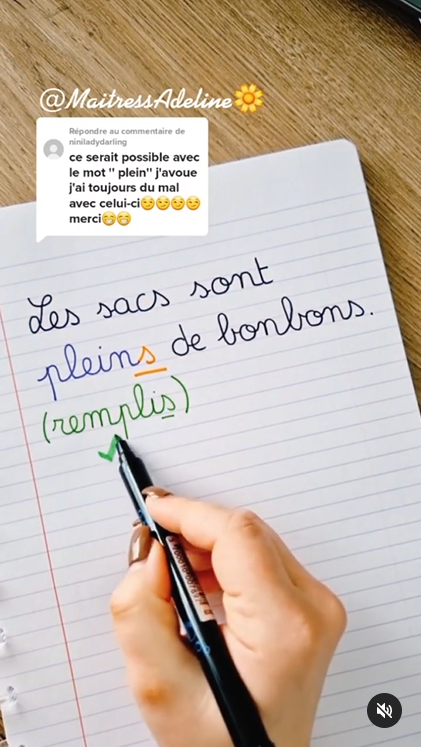 @MaitressAdeline🌼
Répondre au commentaire de
niniladydarling
ce serait possible avec
le mot " plein" j'avoue
j'ai toujours du mal
avec celui-ci😏😏😏😏
merci😁😁
Les sacs sont
pleins de bonbons.
(remplis)